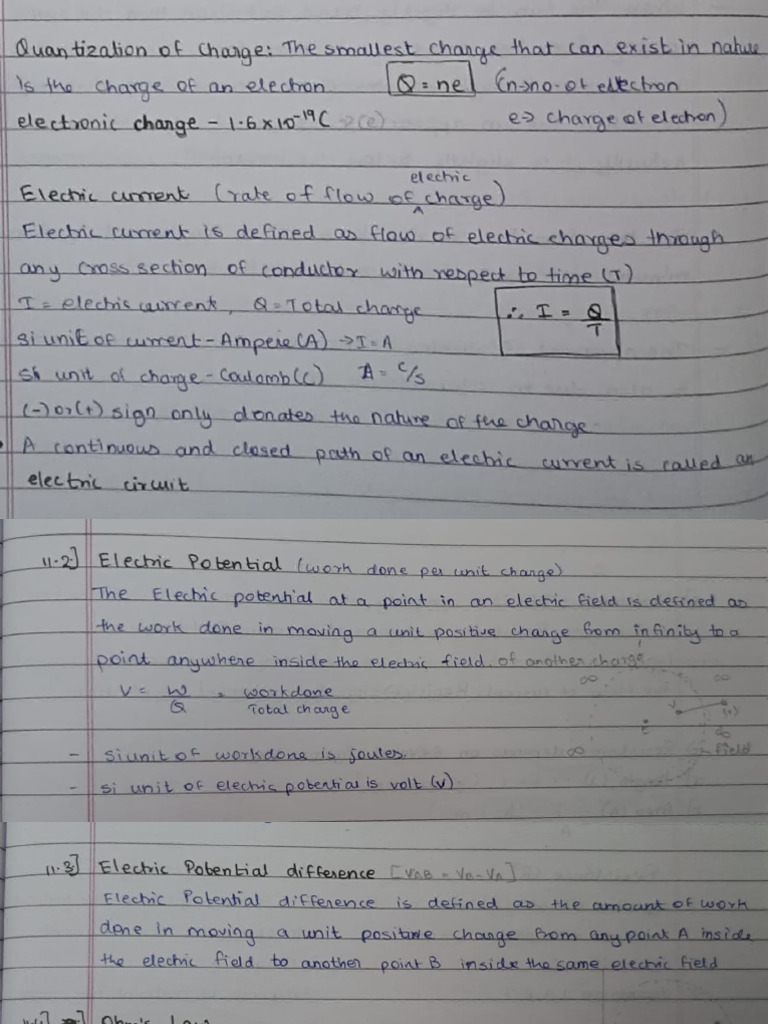 Quantization of charge: The smallest charge that can exist in nature
is the charge of an electron  Q = ne  (n→no. of electron
electronic charge - 1.6 x 10⁻¹⁹C →(e)  e→ charge of electron)
Electric current (rate of flow of electric charge)
Electric current is defined as flow of electric charges through
any cross section of conductor with respect to time (T)
I = electric current, Q = Total charge  ∴ I = Q/T
si unit of current - Ampere (A) → I = A
si unit of charge - Coulomb (C)  A = C/s
(-) or (+) sign only donates the nature of the charge
A continuous and closed path of an electric current is called an
electric circuit
11.2] Electric Potential (work done per unit charge)
The Electric potential at a point in an electric field is defined as
the work done in moving a unit positive charge from infinity to a
point anywhere inside the electric field of another charge
V = W/Q = workdone/Total charge
∞ ∞
V (+)
E
∞ ∞
field
- si unit of workdone is joules
- si unit of electric potential is volt (V)
11.3] Electric Potential difference
Electric Potential difference is defined as the amount of work
done in moving a unit positive charge from any point A inside
the electric field to another point B inside the same electric field